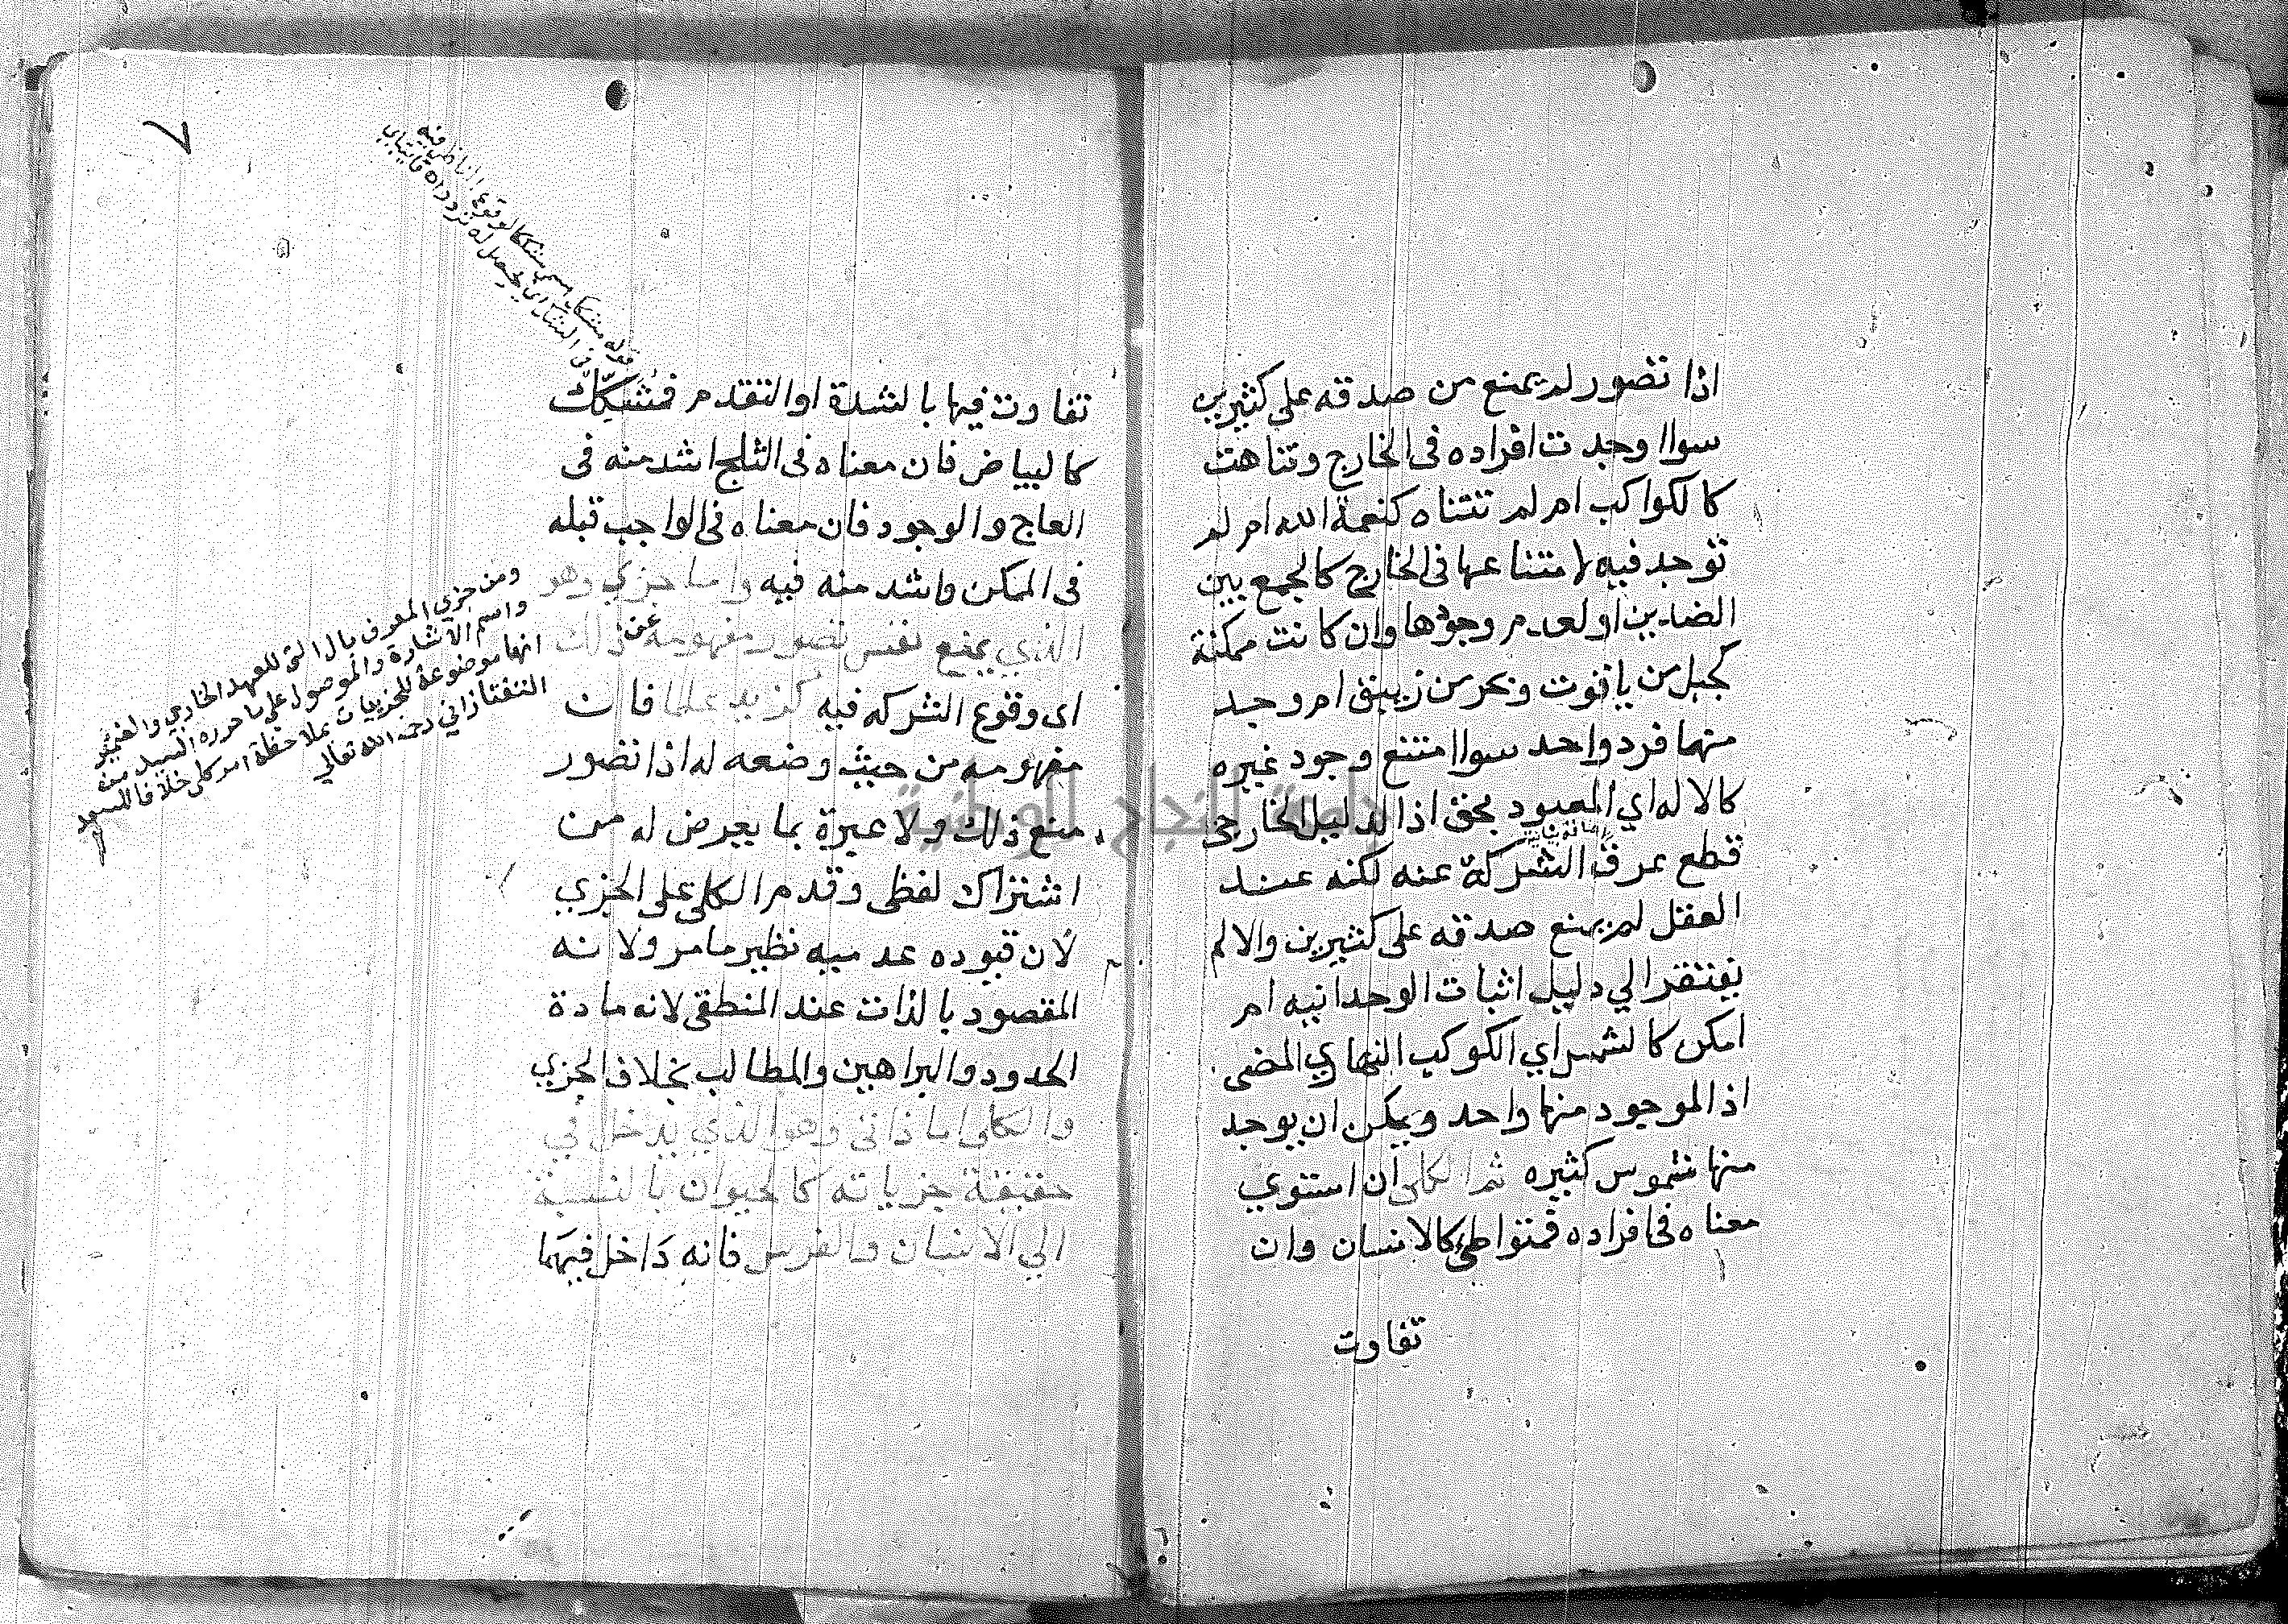 اذا تصور لم يمنع من صدقه على كثيرين
سوا وجدت افراده فى الخارج وتناهت
كالكواكب ام لم تتناه كنعمة الله ام لم
توجد فيه لامتناعها فى الخارج كالجمع بين
الضدين او لعدم وجودها وان كانت ممكنة
كجبل من ياقوت وبحر من زيبق ام وجد
منها فرد واحد سوا امتنع وجود غيره
كالاله اي المعبود بحق اذ الدليل الخارجى
قطع عرق الشركة عنه لكنه عند
العقل لم يمنع صدقه على كثيرين والا لم
يفتقر الي دليل اثبات الوحدانيه ام
امكن كالشمس اي الكوكب النهاري المضى
اذ الموجود منها واحد ويمكن ان يوجد
منها شموس كثيره ثم الكلى ان استوي
معناه فى افراده فمتواطئ كالانسان وان
تفاوت
٧
قوله مشكك سمي مشككا لوقوع الناظر فيه
فى التشكك اي يحصل له تردد اه
تفاوت فيها بالشدة او التقدم فمُشَكِّك
كالبياض فان معناه فى الثلج اشد منه فى
العاج والوجود فان معناه فى الواجب قبله
فى الممكن واشد منه فيه واما جزي وهو
الذي يمنع نفس تصور مفهومه عن ذلك
اى وقوع الشركه فيه كزيد علما فان
مفهومه من حيث وضعه له اذا تصور
منع ذلك ولا عبرة بما يعرض له من
اشتراك لفظى وقدم الكلى على الجزي
لان قيوده عدميه نظير ما مر ولانه
المقصود بالذات عند المنطقى لانه مادة
الحدود والبراهين والمطالب بخلاف الجزي
والكلى اما ذاتى وهو الذي يدخل في
حقيقة جزياته كالحيوان بالنسبة
الي الانسان والفرس فانه دَاخل فيهَما
ومن جزي المعرف بال التي للعهد الخارجي والضمير
واسم الاشارة والموصول على ما حرره السيد من
انها موضوعة للجزييات بملاحظة امر كلى خلافا للسعد
التفتازاني رحمه الله تعالي